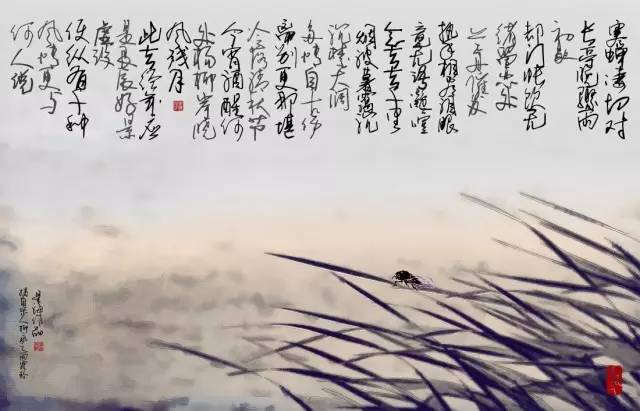 寒蝉凄切对
长亭晚骤雨
初歇
都门帐饮无
绪留恋处
兰舟催发
执手相看泪眼
竟无语凝噎
念去去千里
烟波暮霭沉
沉楚天阔
多情自古伤
离别更那堪
冷落清秋节
今宵酒醒何
处杨柳岸晓
风残月
此去经年应
是良辰好景
虚设
便纵有千种
风情更与
何人说